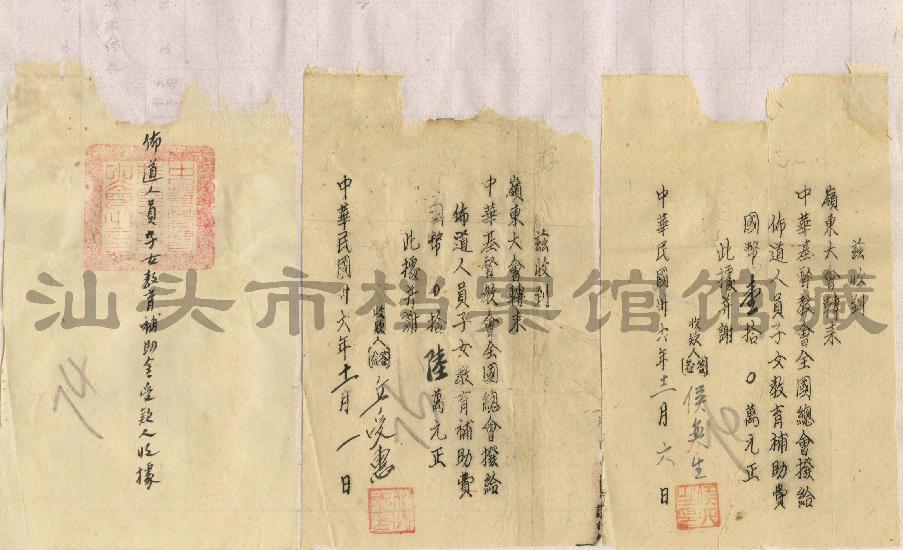 茲收到
嶺東大會轉來
中華基督教會全國總會撥給
佈道人員子女教育補助費
國幣壹拾0萬元正
此據并謝
收款人
侯奧生
中華民國卅六年十一月六日
茲收到
嶺東大會轉來
中華基督教會全國總會撥給
佈道人員子女教育補助費
國幣0拾陸萬元正
此據并謝
收款人
中華民國卅六年十一月一日
佈道人員子女教育補助金受款人收據
74
汕头市档案馆馆藏